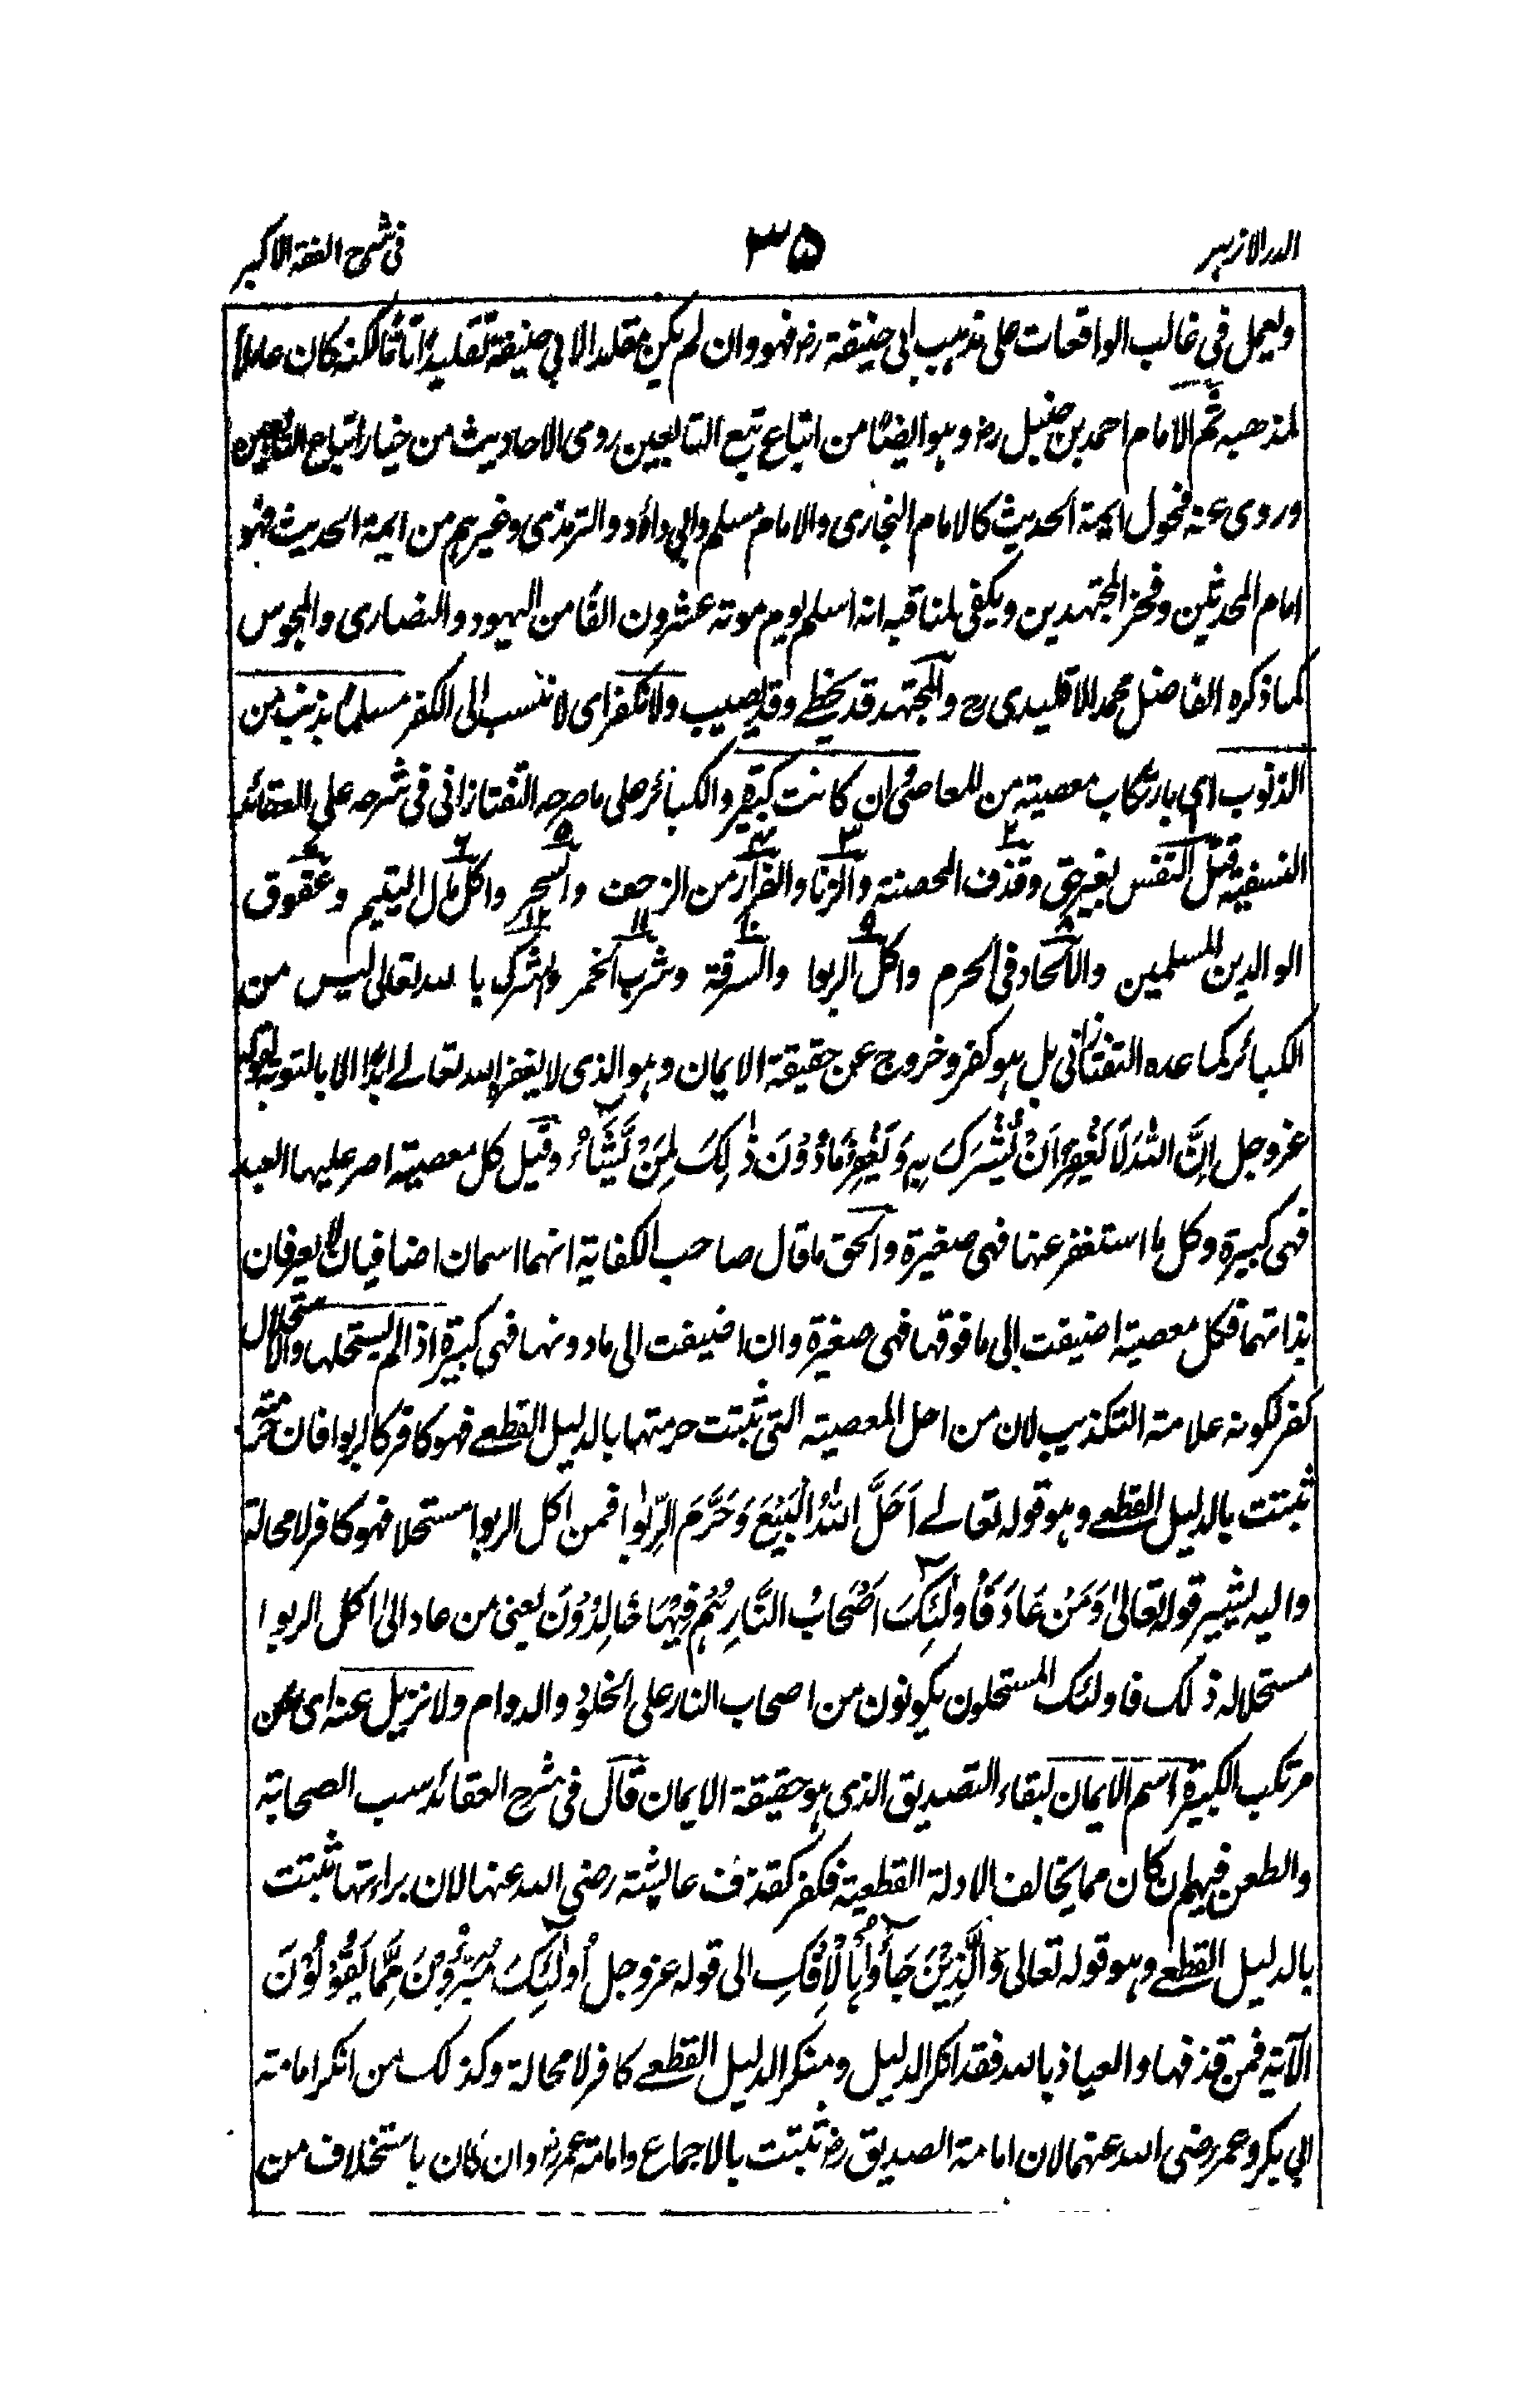 الدر الازهر
٣٥
فی شرح الفقه الاکبر
ویعمل فی غالب الواقعات علی مذهب ابی حنیفة رض فهو وان لم یکن مقلدا لابی حنیفة تقلیدًا تامًا لکنه کان عاملاً
لمذهبه ثم الامام احمد بن حنبل رض وهو ایضًا من اتباع تبع التابعین روی الاحادیث من خیار اتباع التابعین
وروی عنه فحول ایمة الحدیث کالامام البخاری والامام مسلم وابی داؤد والترمذی وغیرهم من ایمة الحدیث فهو
امام المحدثین وفخر المجتهدین ویکفی لمناقبه انه اسلم یوم موته عشرون الفًا من الیهود والنصاری والمجوس
کما ذکره الفاضل محمد الاقلیدی رح والمجتهد قد یخطی وقد یصیب ولا نکفر ای لا ننسب الی الکفر مسلما بذنب من
الذنوب ای بارتکاب معصیة من المعاصی وان کانت کبیرة والکبائر علی ما صرحه التفتازانی فی شرحه علی العقائد
النسفیة قتل النفس بغیر حق وقذف المحصنة والزنا والفرار من الزحف والسحر واکل مال الیتیم وعقوق
الوالدین المسلمین والالحاد فی الحرم واکل الربوا والسرقة وشرب الخمر والشرک بالله تعالی لیس من
الکبائر کما عده التفتازانی بل هو کفر وخروج عن حقیقة الایمان وهو الذی لا یغفره الله تعالے ابدًا الا بالتوبة لقوله
عز وجل اِنَّ اللهَ لَا یَغْفِرُ اَنْ یُّشْرَكَ بِهٖ وَیَغْفِرُ مَا دُوْنَ ذٰلِكَ لِمَنْ یَّشَآءُ وقیل کل معصیة اصر علیها العبد
فهی کبیرة وکل ما استغفر عنها فهی صغیرة والحق ما قال صاحب الکفایة انهما اسمان اضافیان لا یعرفان
بذاتهما فکل معصیة اضیفت الی ما فوقها فهی صغیرة وان اضیفت الی ما دونها فهی کبیرة اذا لم یستحلها والاستحلال
کفر لکونه علامة التکذیب لان من احل المعصیة التی ثبتت حرمتها بالدلیل القطعے فهو کافر کالربوا فان حرمته
ثبتت بالدلیل القطعے وهو قوله تعالے اَحَلَّ اللهُ الْبَیْعَ وَحَرَّمَ الرِّبٰوا فمن اکل الربوا مستحلا فهو کافر لا محالة
والیه یشیر قوله تعالیٰ وَمَنْ عَادَ فَاُولٰئِكَ اَصْحَابُ النَّارِ هُمْ فِیْهَا خَالِدُوْنَ یعنی من عاد الیٰ اکل الربوا
مستحلا له ذلک فاولئک المستحلون یکونون من اصحاب النار علی الخلود والدوام ولا نزیل عنه ای عن
مرتکب الکبیرة اسم الایمان لبقاء التصدیق الذی هو حقیقة الایمان قال فی شرح العقائد سب الصحابة
والطعن فیهم ان کان مما یخالف الادلة القطعیة فکفر کقذف عایشة رضی الله عنها لان براءتها ثبتت
بالدلیل القطعے وهو قوله تعالی وَالَّذِیْنَ جَآءُوْا بِالْاِفْكِ الی قوله عز وجل اُولٰئِكَ مُبَرَّءُوْنَ مِمَّا یَقُوْلُوْنَ
الآیة فمن قذفها والعیاذ بالله فقد انکر الدلیل ومنکر الدلیل القطعے کافر لا محالة وکذلک من انکر امامة
ابی بکر وعمر رضی الله عنهما لان امامة الصدیق رض ثبتت بالاجماع وامامة عمر رض وان کان باستخلاف من